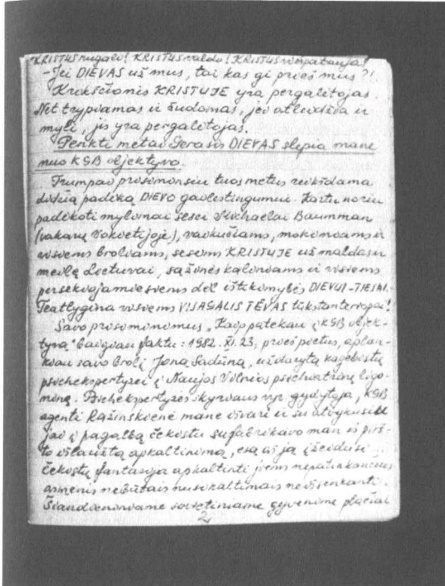 KRISTUS nugalėjo! KRISTUS valdo! KRISTUS viešpatauja!
- Jei DIEVAS už mus, tai kas gi prieš mus?!
Krikščionis KRISTUJE yra pergalėtojas.
Net trypiamas ir žudomas, jei atleidžia ir
myli, jis yra pergalėtojas.
Penkti metai Gerasis DIEVAS slepia mane
nuo KGB objektyvo.
Trumpai prisiminsiu tuos metus reikšdama
didžią padėką DIEVO gailestingumui. Kartu noriu
padėkoti mylimai sesei Michaelai Baumman
(vakarų Vokietijoje), vaikučiams, mokiniams ir
visiems broliams, sesėms KRISTUJE už maldas ir
meilę Lietuvai, sąžinės kaliniams ir visiems
persekiojamiesiems dėl ištikimybės DIEVUI-TIESAI.
Teatlygina visiems VISAGALIS TĖVAS tūkstanteriopai!
Savo prisiminimus „Kaip patekau į KGB objek-
tyvą" baigiau faktu: 1982.XI.23, prieš pietus, aplan-
kiau savo brolį Joną Sadūną, uždarytą kagebistų
psichekspertizei į Naujos Vilnios psichiatrinę ligo-
ninę. Psichekspertizės skyriaus vyr. gydytoja, KGB
agentė Ražinskienė mane išvarė ir su atvykusiu
jai į pagalbą čekistu sufabrikavo man iš pirš-
to išlaužtą apkaltinimą, esą aš ją įžeidusi
čekistų fantazija apkaltinti jiems nepatinkančius
asmenis nebūtais nusikaltimais neišsenkanti.
Šiandieniniame sovietiniame gyvenime plačiai
2